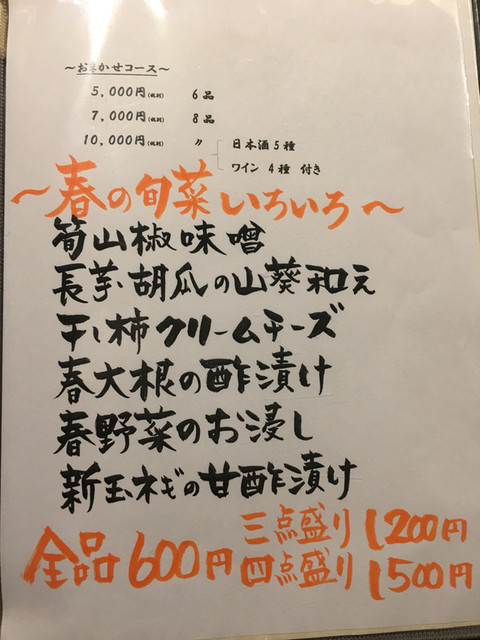 ～おまかせコース～
5,000円(税別) 6品
7,000円(税別) 8品
10,000円(税別) 〃 日本酒5種
ワイン 4種 付き
～春の旬菜いろいろ～
筍山椒味噌
長芋胡瓜の山葵和え
干し柿クリームチーズ
春大根の酢漬け
春野菜のお浸し
新玉ネギの甘酢漬け
全品600円
三点盛り1200円
四点盛り1500円